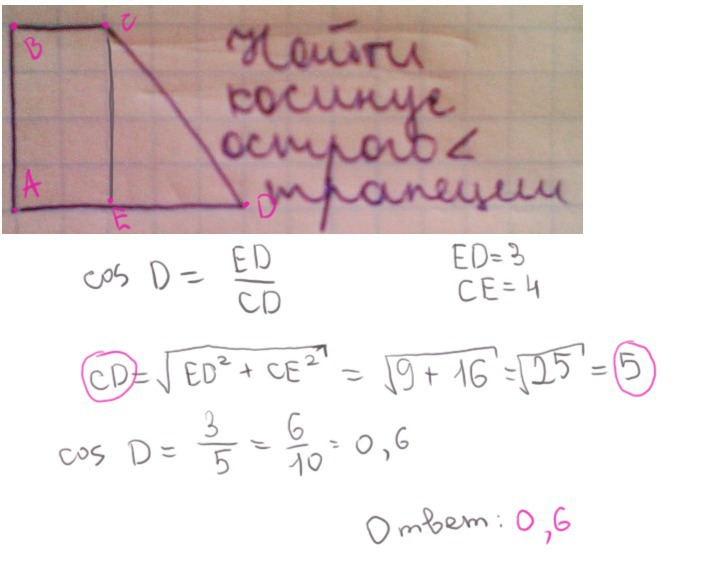 B C
Найти
косинус
острого <
трапеции
A E D
cos D = ED/CD
ED=3
CE=4
CD=√ED² + CE² = √9 + 16 = √25 = 5
cos D = 3/5 = 6/10 = 0,6
Ответ: 0,6